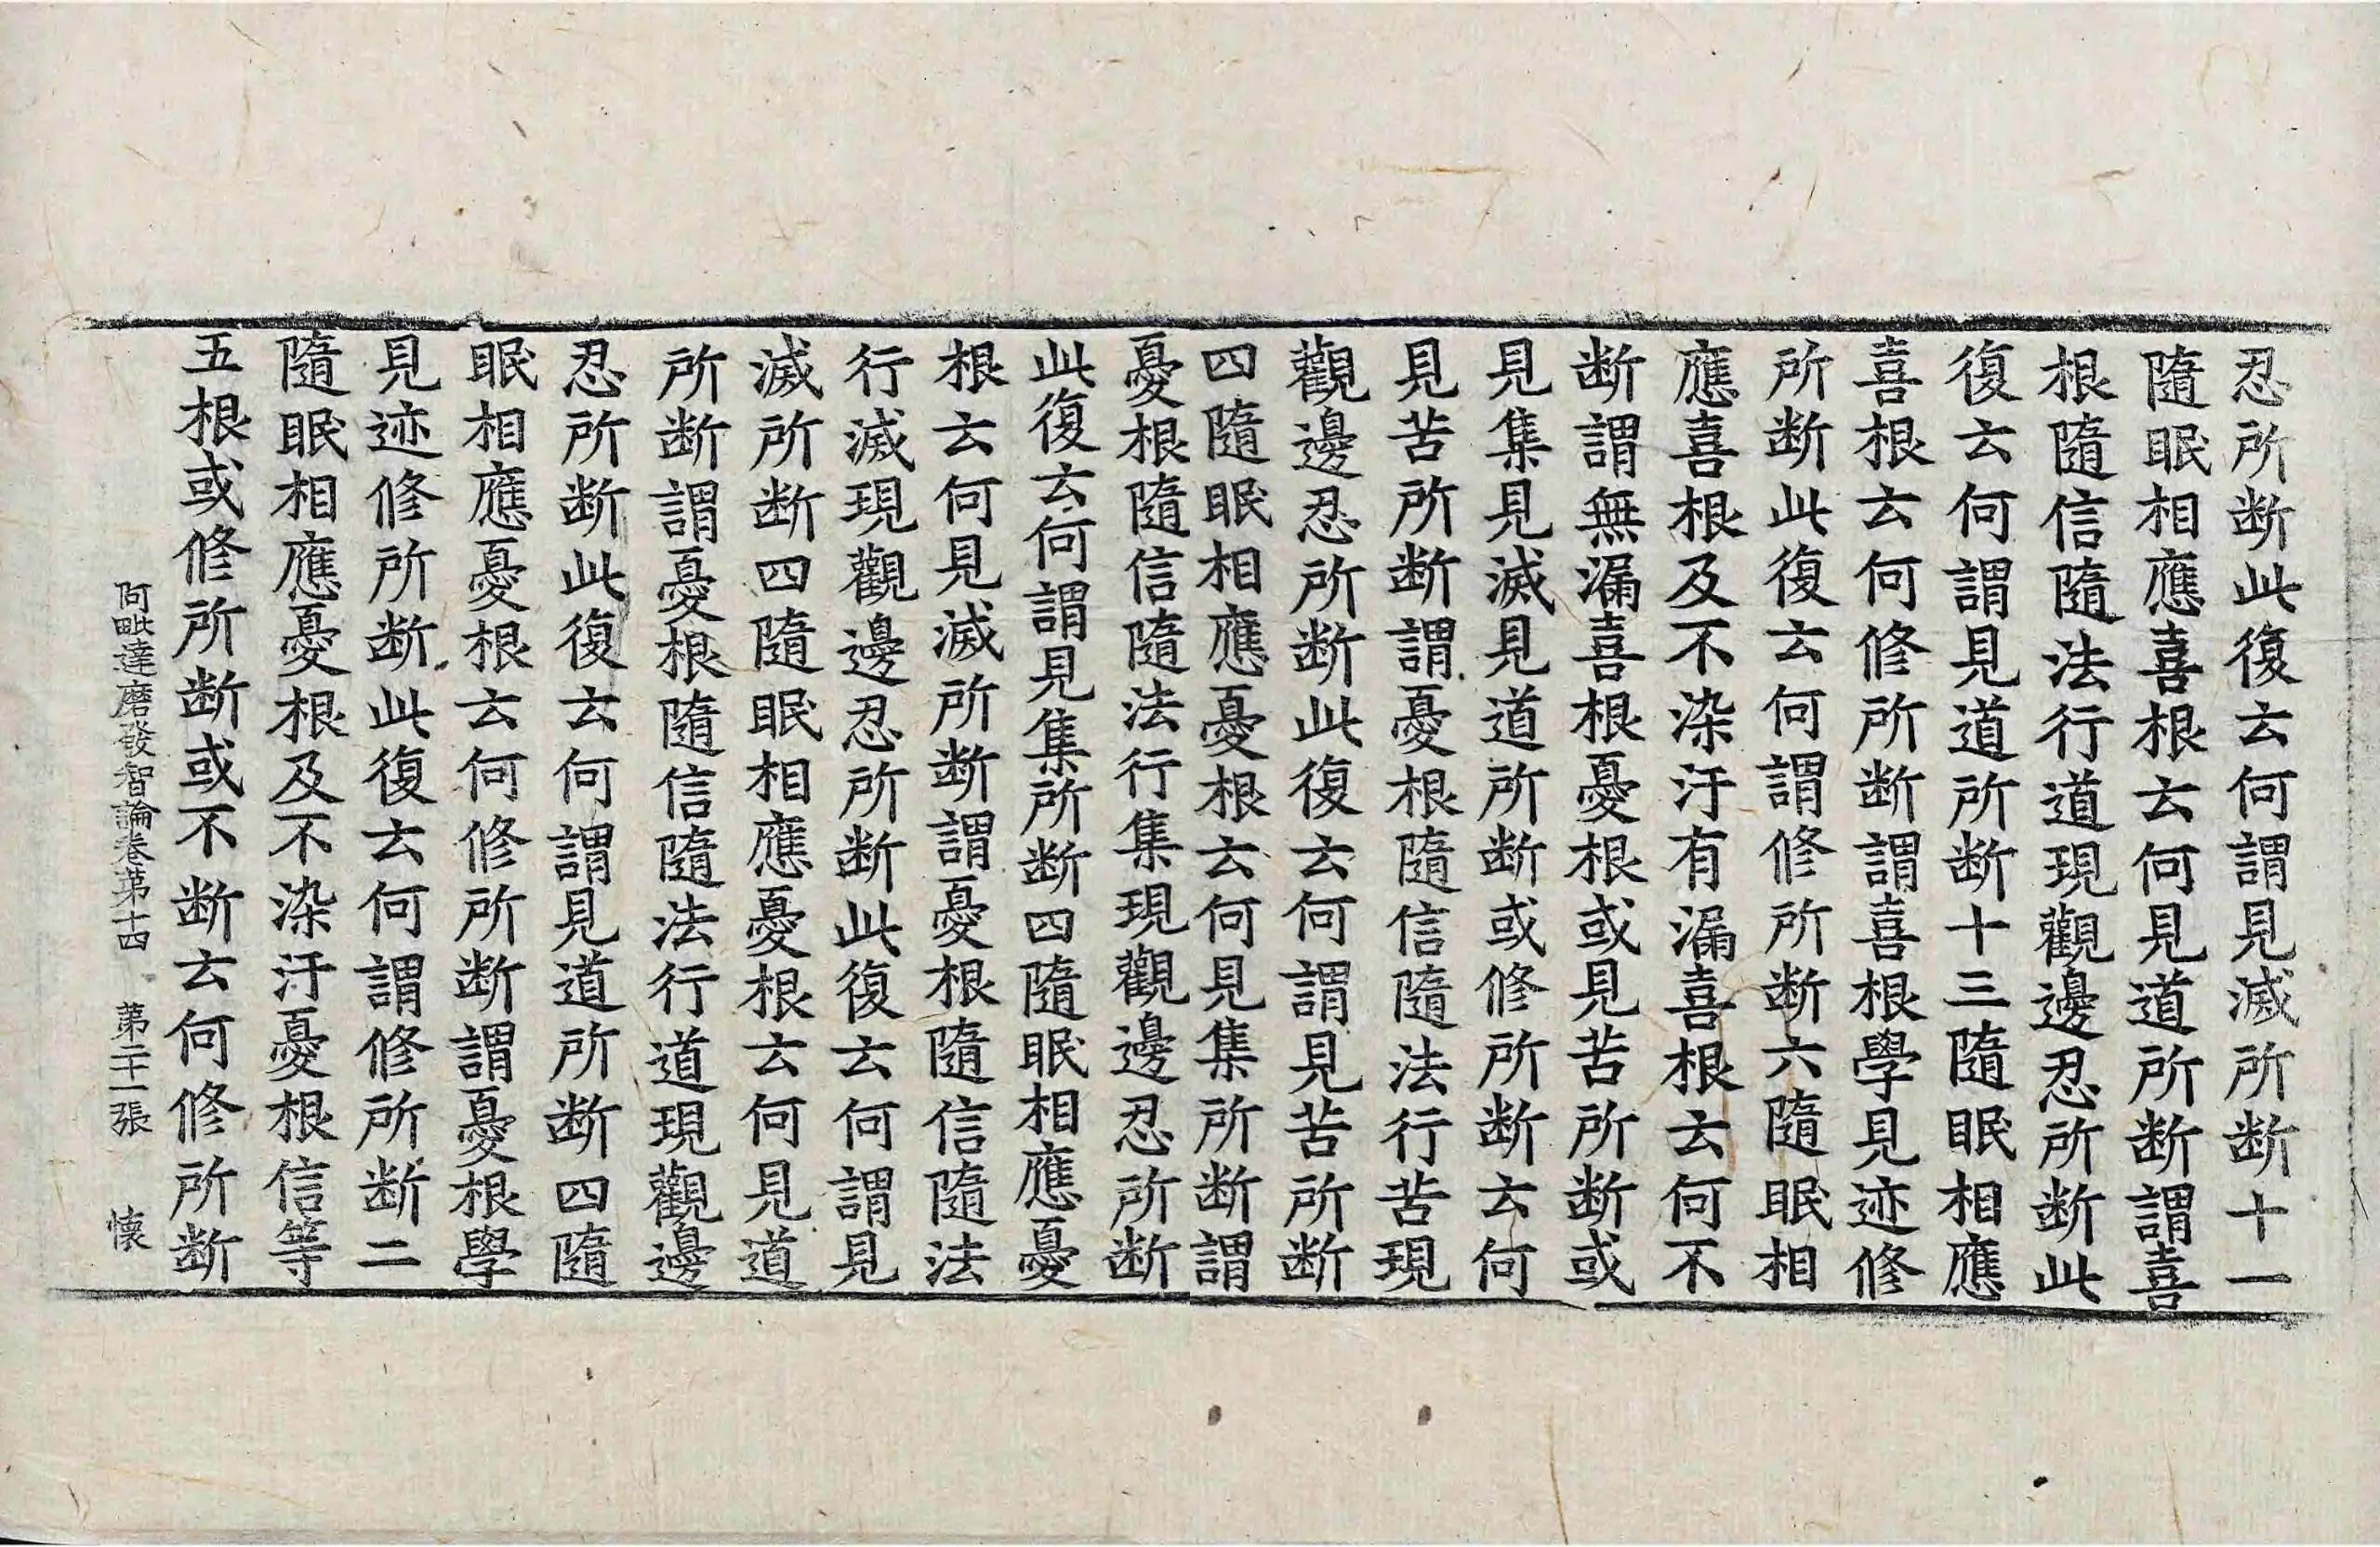 忍所断此復云何謂見滅所断十一
隨眠相應喜根云何見道所断謂喜
根隨信隨法行道現觀邊忍所断此
復云何謂見道所断十三隨眠相應
喜根云何修所断謂喜根學見迹修
所断此復云何謂修所断六隨眠相
應喜根及不染汙有漏喜根云何不
断謂無漏喜根憂根或見苦所断或
見集見滅見道所断或修所断云何
見苦所断謂憂根隨信隨法行苦現
觀邊忍所断此復云何謂見苦所断
四隨眠相應憂根云何見集所断謂
憂根隨信隨法行集現觀邊忍所断
此復云何謂見集所断四隨眠相應憂
根云何見滅所断謂憂根隨信隨法
行滅現觀邊忍所断此復云何謂見
滅所断四隨眠相應憂根云何見道
所断謂憂根隨信隨法行道現觀邊
忍所断此復云何謂見道所断四隨
眠相應憂根云何修所断謂憂根學
見迹修所断此復云何謂修所断二
隨眠相應憂根及不染汙憂根信等
五根或修所断或不断云何修所断
阿毗達磨發智論卷苐十四 苐二十一張 懐